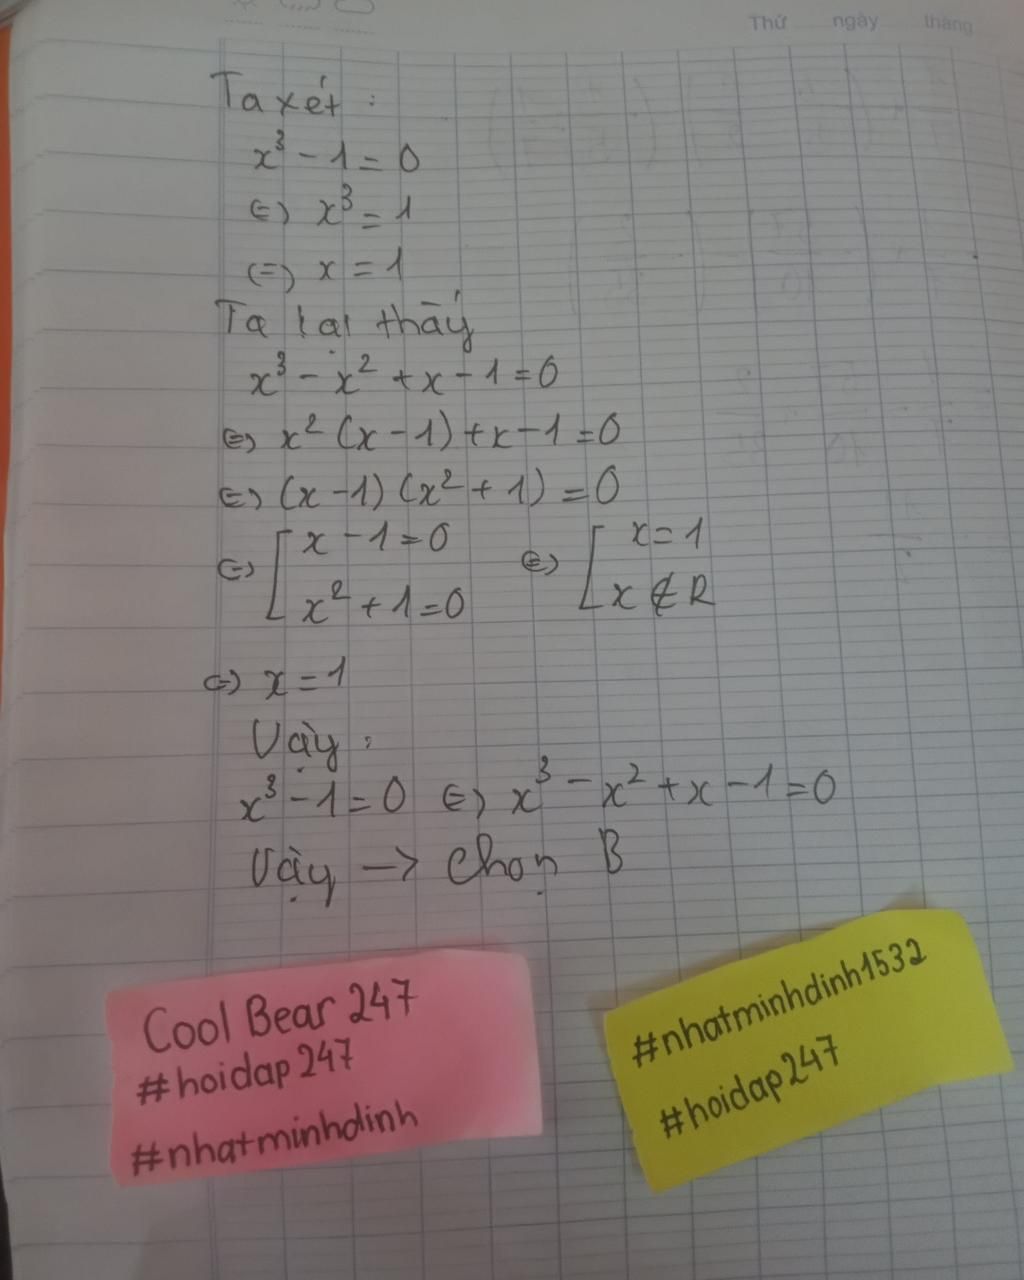 Thứ ngày tháng
Ta xét :
x³ - 1 = 0
⇔ x³ = 1
⇔ x = 1
Ta lại thấy
x³ - x² + x - 1 = 0
⇔ x² (x - 1) + x - 1 = 0
⇔ (x - 1) (x² + 1) = 0
⇔ [ x - 1 = 0 ⇔ [ x = 1
x² + 1 = 0 x ∉ R
⇔ x = 1
Vậy :
x³ - 1 = 0 ⇔ x³ - x² + x - 1 = 0
Vậy -> Chọn B
Cool Bear 247
#hoidap247
#nhatminhdinh
#nhatminhdinh1532
#hoidap247